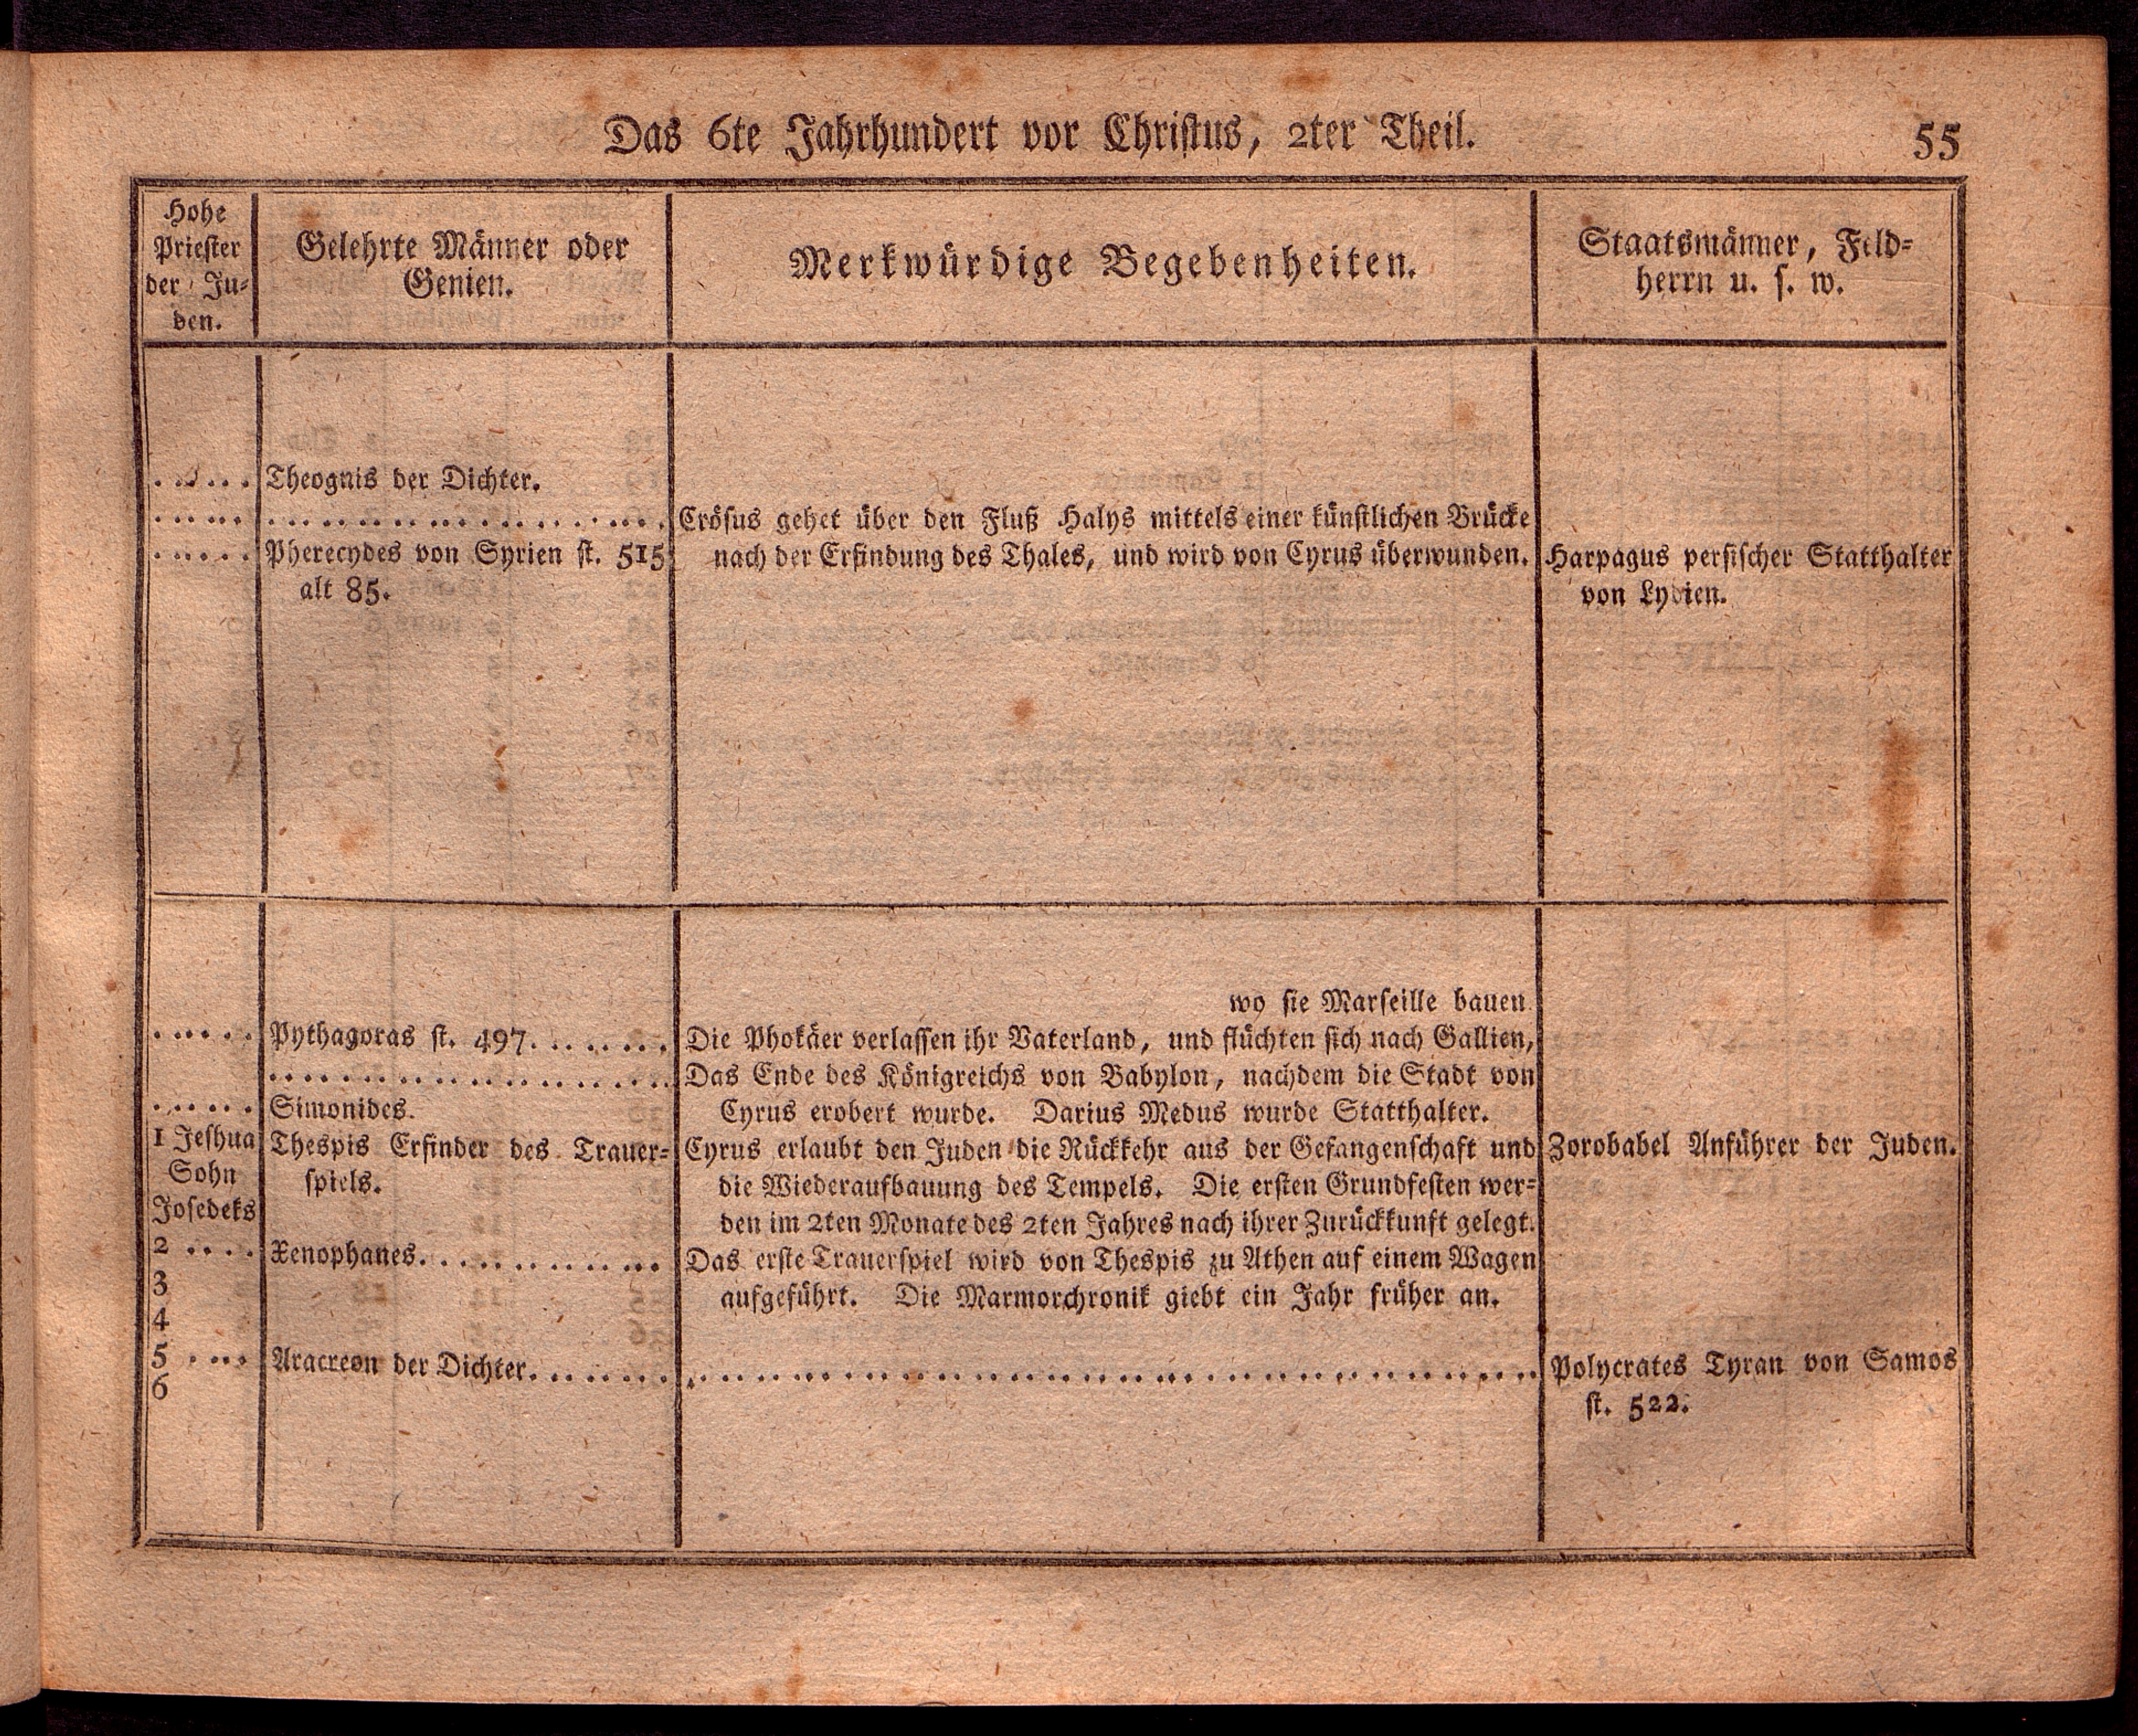 Das 6te Jahrhundert vor Christus, 2ter Theil.
55
Hohe
Priester
der Ju-
den.
Gelehrte Männer oder
Genien.
Merkwürdige Begebenheiten.
Staatsmänner, Feld-
herrn u. s. w.
..... Theognis der Dichter.
..... ..................... Crösus gehet über den Fluß Halys mittels einer künstlichen Brücke
nach der Erfindung des Thales, und wird von Cyrus überwunden.
..... Pherecydes von Syrien st. 515
alt 85.
Harpagus persischer Statthalter
von Lydien.
wo sie Marseille bauen
..... Pythagoras st. 497........ Die Phokäer verlassen ihr Vaterland, und flüchten sich nach Gallien,
..................... Das Ende des Königreichs von Babylon, nachdem die Stadt von
Cyrus erobert wurde. Darius Medus wurde Statthalter.
..... Simonides.
1 Jeshua
Sohn
Josedeks
Thespis Erfinder des Trauer-
spiels.
Cyrus erlaubt den Juden die Rückkehr aus der Gefangenschaft und
die Wiederaufbauung des Tempels. Die ersten Grundfesten wer-
den im 2ten Monate des 2ten Jahres nach ihrer Zurückkunft gelegt.
Zorobabel Anführer der Juden.
2 .... Xenophanes............. Das erste Trauerspiel wird von Thespis zu Athen auf einem Wagen
aufgeführt. Die Marmorchronik giebt ein Jahr früher an.
3
4
5 .... Aracreon der Dichter........ ................................ Polycrates Tyran von Samos
st. 522.
6